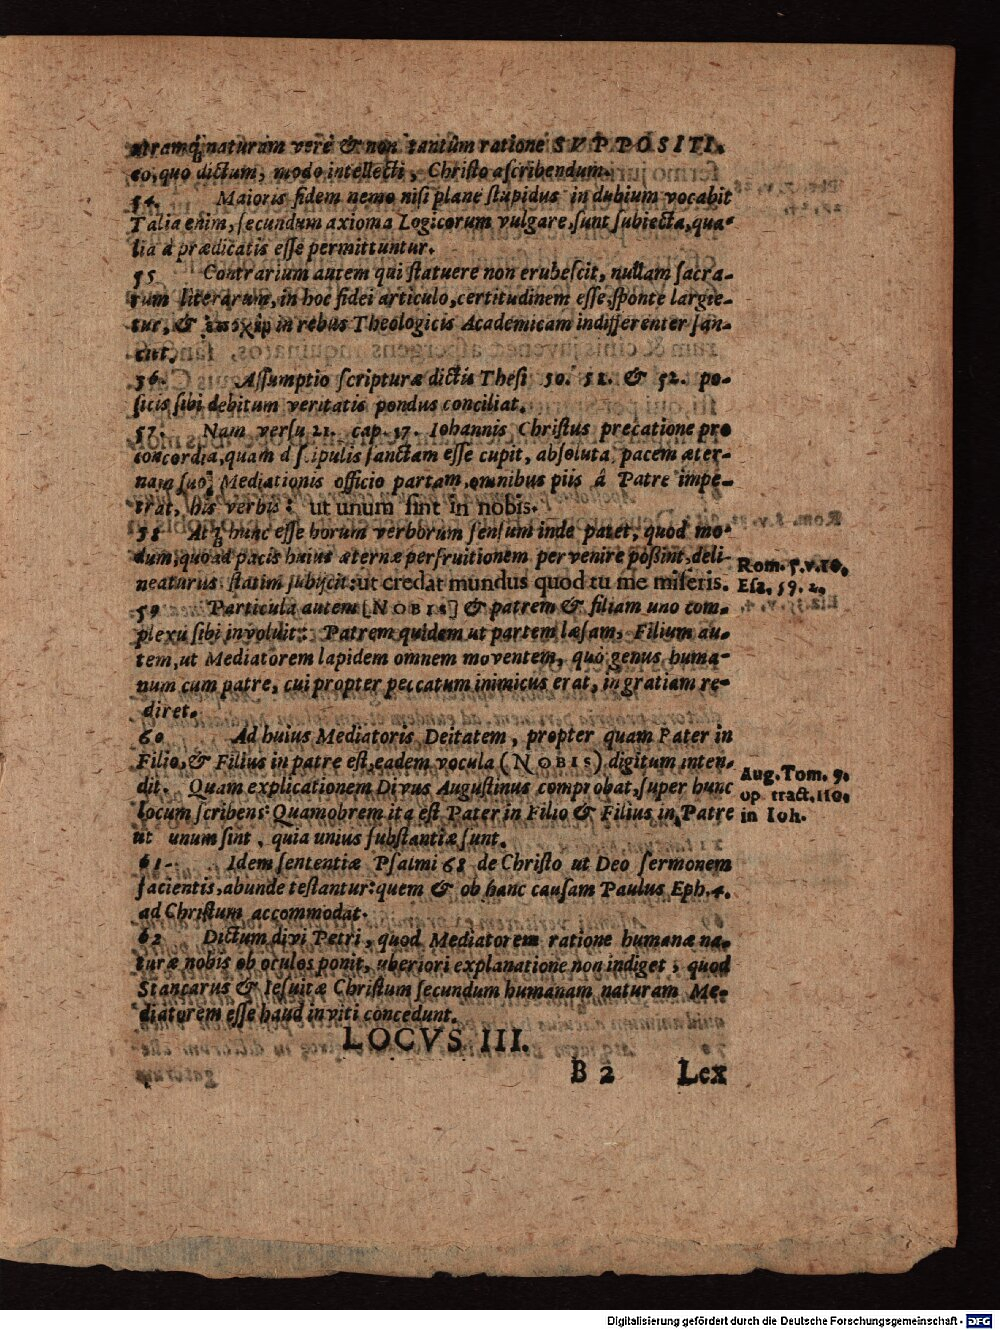 utramq́; naturam verè & non tantùm ratione SVPPOSITI.
eo, quo dictum, modo intellecti, Christo ascribendum.
54. Maioris fidem nemo nisi plane stupidus in dubium vocabit
Talia enim, secundum axioma Logicorum vulgare, sunt subiecta, qua-
lia à prædicatis esse permittuntur.
55. Contrarium autem qui statuere non erubescit, nullam sacra-
rum literarum, in hoc fidei articulo, certitudinem esse, sponte largie-
tur, & ἐποχὴν in rebus Theologicis Academicam indifferenter san-
ciet.
56. Assumptio scripturæ dictis Thesi 50. 51. & 52. po-
sitis sibi debitum veritatis pondus conciliat.
57. Nam versu 21. cap. 17. Iohannis Christus precatione pro
concordia, quam discipulis sanctam esse cupit, absoluta, pacem æter-
nam suo Mediationis officio partam, omnibus piis â Patre impe-
trat, his verbis: ut unum sint in nobis.
58 Atq́; hunc esse horum verborum sensum inde patet, quod mo-
dum, quo ad pacis huius æternæ perfruitionem pervenire poßint, deli-
neaturus statim subijcit: ut credat mundus quod tu me miseris.
Rom. 5. v. 10.
Esa. 59. 2.
59 Particula autem [NOBIS] & patrem & filiam uno com-
plexu sibi involvit: Patrem quidem ut partem læsam, Filium au-
tem, ut Mediatorem lapidem omnem moventem, quò genus huma-
num cum patre, cui propter peccatum inimicus erat, in gratiam re-
diret.
60 Ad huius Mediatoris Deitatem, propter quam Pater in
Filio, & Filius in patre est, eadem vocula (NOBIS) digitum inten-
dit. Quam explicationem Divus Augustinus comprobat, super hunc
locum scribens: Quamobrem ita est Pater in Filio & Filius in Patre
ut unum sint, quia unius substantiæ sunt.
Aug. Tom. 9.
op tract. 110.
in Ioh.
61. Idem sententiæ Psalmi 68 de Christo ut Deo sermonem
facientis, abunde testantur: quem & ob hanc causam Paulus Eph. 4.
ad Christum accommodat.
62 Dictum divi Petri, quod Mediatorem ratione humanæ na-
turæ nobis ob oculos ponit, uberiori explanatione non indiget, quod
Stancarus & Iesuitæ Christum secundum humanam naturam Me-
diatorem esse haud inviti concedunt.
LOCVS III.
B 2 Lex
Digitalisierung gefördert durch die Deutsche Forschungsgemeinschaft - DFG